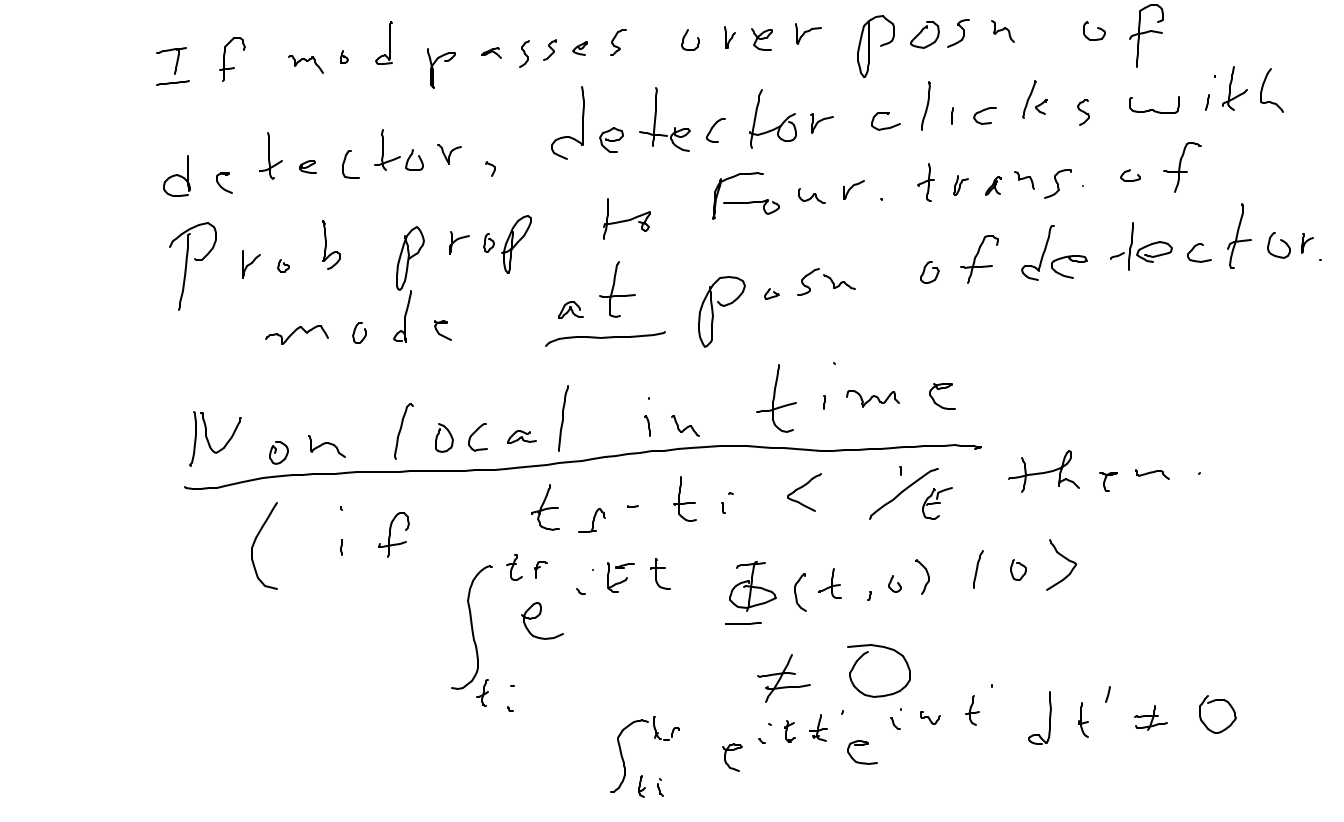 If mod passes over posn of
detector, detector clicks with
Prob prop to Four. trans. of
mode at posn of detector.
Non local in time
( if t_f - t_i < 1/E then.
∫_{t_i}^{t_f} e^{iEt} Φ(t,0) |0>
≠ 0
∫_{t_i}^{t_f} e^{iEt'} e^{iωt'} dt' ≠ 0